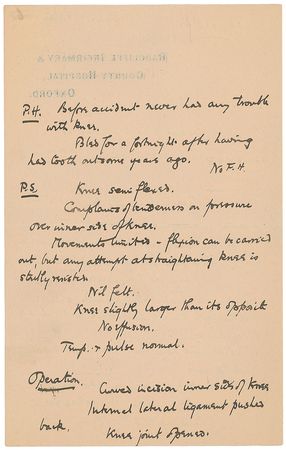 RADCLIFFE INFIRMARY &
COUNTY HOSPITAL,
OXFORD.
P.H. Before accident never had any trouble
with knee.
Bled for a fortnight after having
had tooth out some years ago.
No F.H.
P.S. Knee semiflexed.
Complains of tenderness on pressure
over inner side of knee.
Movements limited - flexion can be carried
out, but any attempt at straightening knee is
stoutly resisted.
Nil felt.
Knee slightly larger than its opposite
No effusion.
Temp. & pulse normal.
Operation. Curved incision inner side of knee
Internal lateral ligament pushed
back.
Knee joint opened.